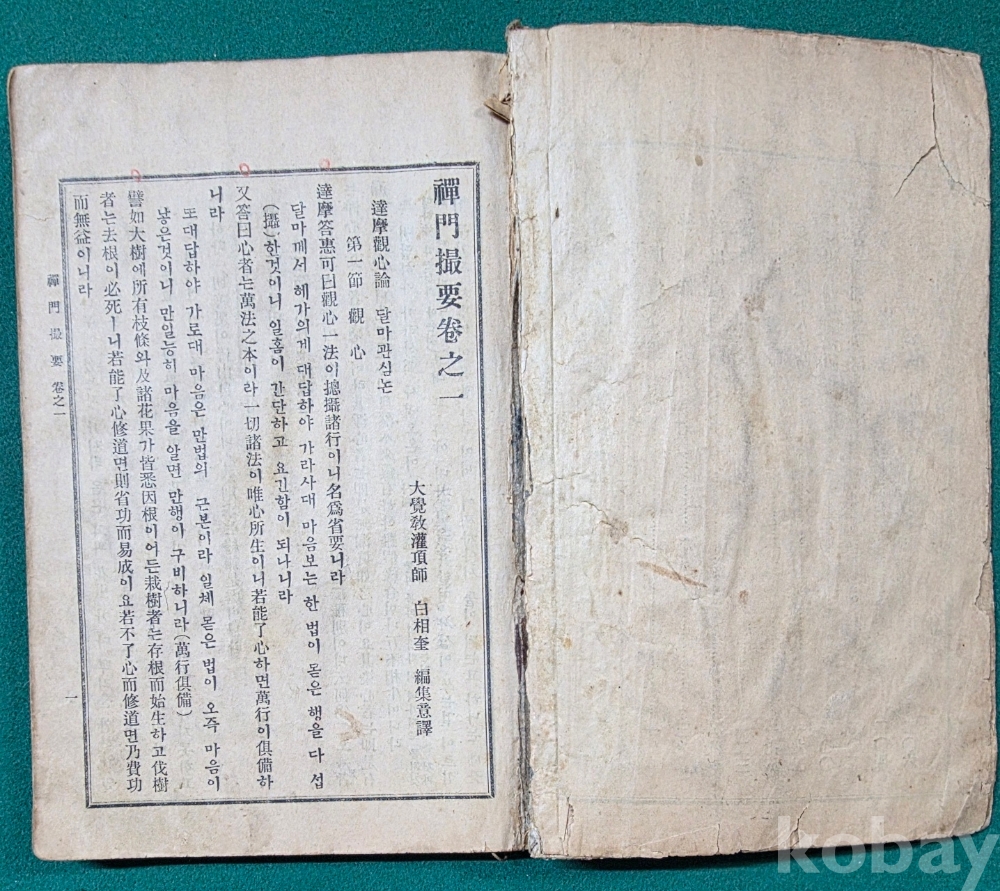 禪門撮要卷之一
大覺敎灌頂師 白相奎 編集意譯
達摩觀心論 달마관심논
第一節 觀心
達摩答惠可曰觀心一法이摠攝諸行이니名爲省要니라
달마께서 혜가의게 대답하야 가라사대 마음보는 한 법이 몯은 행을 다 섭
(攝)한것이니 일홈이 간단하고 요긴함이 되나니라
又答曰心者는萬法之本이라一切諸法이唯心所生이니若能了心하면萬行이俱備하
니라
또대답하야 가로대 마음은 만법의 근본이라 일체 몯은 법이 오즉 마음이
낳은것이니 만일능히 마음을 알면 만행이 구비하니라(萬行俱備)
譬如大樹에所有枝條와及諸花果가皆悉因根이어든栽樹者는存根而始生하고伐樹
者는去根이必死ㅣ니若能了心修道면則省功而易成이요若不了心而修道면乃費功
而無益이니라
禪門撮要 卷之一
一
kobay